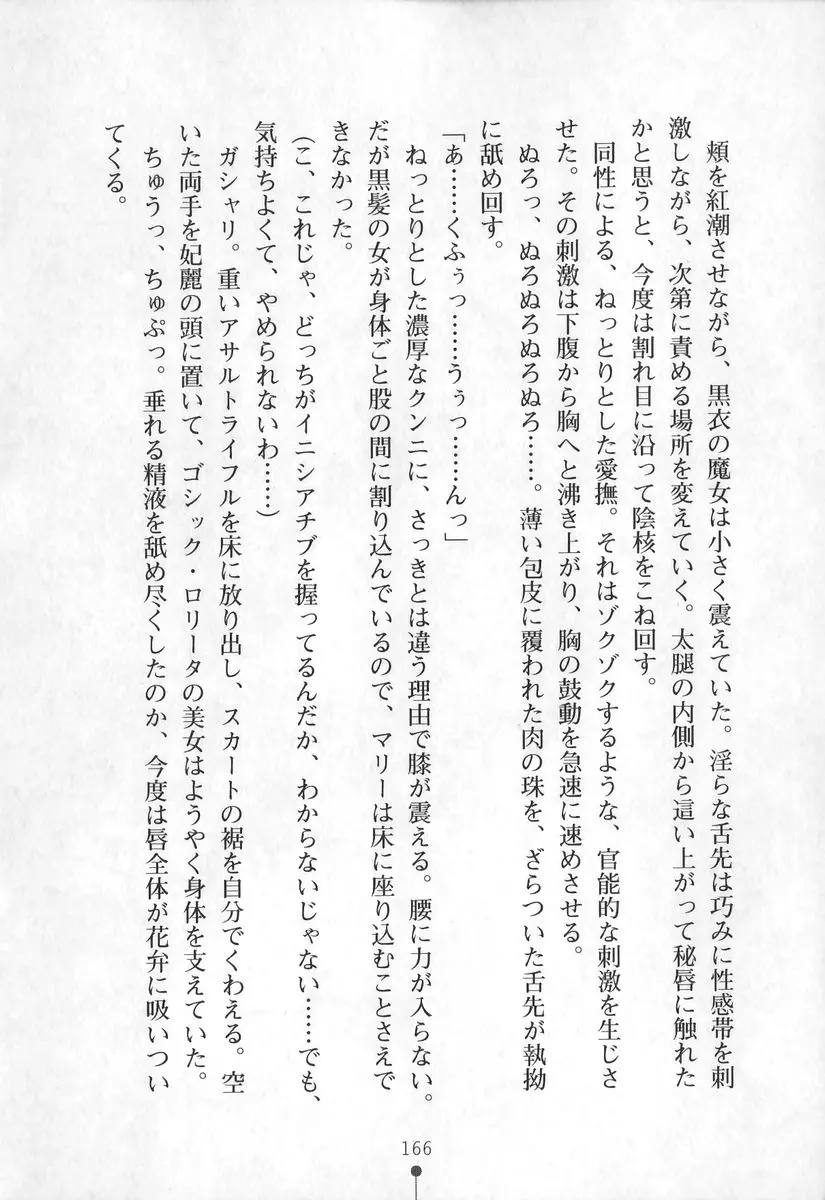 頬を紅潮させながら、黒衣の魔女は小さく震えていた。淫らな舌先は巧みに性感帯を刺
激しながら、次第に責める場所を変えていく。太腿の内側から這い上がって秘唇に触れた
かと思うと、今度は割れ目に沿って陰核をこね回す。
同性による、ねっとりとした愛撫。それはゾクゾクするような、官能的な刺激を生じさ
せた。その刺激は下腹から胸へと沸き上がり、胸の鼓動を急速に速めさせる。
ぬろっ、ぬろぬろぬろぬろ……。薄い包皮に覆われた肉の珠を、ざらついた舌先が執拗
に舐め回す。
「あ……くふぅっ……うぅっ……んっ」
ねっとりとした濃厚なクンニに、さっきとは違う理由で膝が震える。腰に力が入らない。
だが黒髪の女が身体ごと股の間に割り込んでいるので、マリーは床に座り込むことさえで
きなかった。
（こ、これじゃ、どっちがイニシアチブを握ってるんだか、わからないじゃない……でも、
気持ちよくて、やめられないわ……）
ガシャリ。重いアサルトライフルを床に放り出し、スカートの裾を自分でくわえる。空
いた両手を妃麗の頭に置いて、ゴシック・ロリータの美女はようやく身体を支えていた。
ちゅうっ、ちゅぷっ。垂れる精液を舐め尽くしたのか、今度は唇全体が花弁に吸いつい
てくる。
166